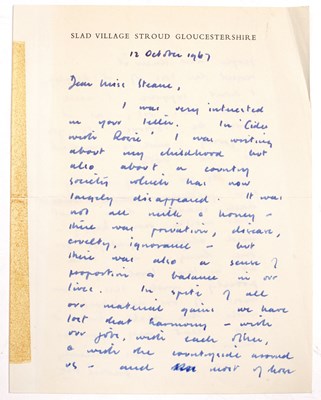 SLAD VILLAGE STROUD GLOUCESTERSHIRE
12 October 1967
Dear Miss Steane,
I was very interested
in your letter. In 'Cider
with Rosie' I was writing
about my childhood but
also about a country
society which has now
largely disappeared. It was
not all milk & honey -
there was privation, disease,
cruelty, ignorance - but
there was also a sense of
proportion & balance in our
lives. In spite of all
our material gains we have
lost that harmony - with
our jobs, with each other,
& with the countryside around
us - and most of